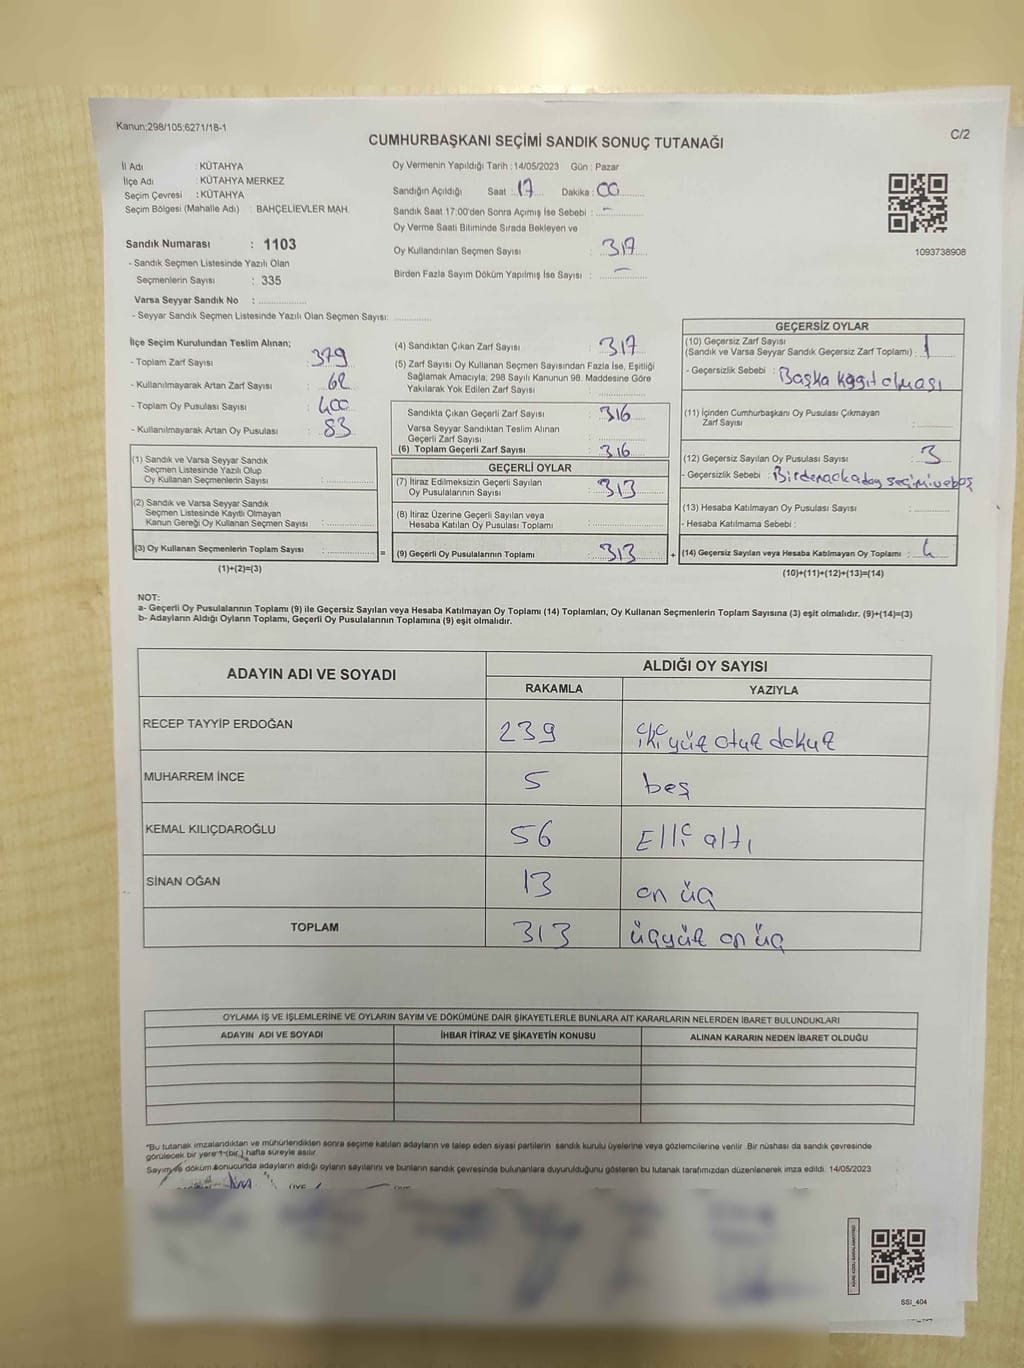 Kanun;298/105;6271/18-1
C/2
CUMHURBAŞKANI SEÇİMİ SANDIK SONUÇ TUTANAĞI
İl Adı : KÜTAHYA
İlçe Adı : KÜTAHYA MERKEZ
Seçim Çevresi : KÜTAHYA
Seçim Bölgesi (Mahalle Adı) : BAHÇELİEVLER MAH.
Sandık Numarası : 1103
- Sandık Seçmen Listesinde Yazılı Olan
Seçmenlerin Sayısı : 335
Varsa Seyyar Sandık No :
- Seyyar Sandık Seçmen Listesinde Yazılı Olan Seçmen Sayısı:
Oy Vermenin Yapıldığı Tarih : 14/05/2023 Gün : Pazar
Sandığın Açıldığı Saat : 17 Dakika : 00
Sandık Saat 17:00'den Sonra Açımış İse Sebebi : -
Oy Verme Saati Bitiminde Sırada Bekleyen ve
Oy Kullandırılan Seçmen Sayısı : 317
Birden Fazla Sayım Döküm Yapılmış İse Sayısı : -
1093738908
İlçe Seçim Kurulundan Teslim Alınan;
- Toplam Zarf Sayısı : 379
- Kullanılmayarak Artan Zarf Sayısı : 62
- Toplam Oy Pusulası Sayısı : 400
- Kullanılmayarak Artan Oy Pusulası : 83
(1) Sandık ve Varsa Seyyar Sandık
Seçmen Listesinde Yazılı Olup
Oy Kullanan Seçmenlerin Sayısı :
(2) Sandık ve Varsa Seyyar Sandık
Seçmen Listesinde Kayıtlı Olmayan
Kanun Gereği Oy Kullanan Seçmen Sayısı :
(3) Oy Kullanan Seçmenlerin Toplam Sayısı : =
(1)+(2)=(3)
(4) Sandıktan Çıkan Zarf Sayısı : 317
(5) Zarf Sayısı Oy Kullanan Seçmen Sayısından Fazla İse, Eşitliği
Sağlamak Amacıyla; 298 Sayılı Kanunun 98. Maddesine Göre
Yakılarak Yok Edilen Zarf Sayısı :
Sandıkta Çıkan Geçerli Zarf Sayısı : 316
Varsa Seyyar Sandıktan Teslim Alınan
Geçerli Zarf Sayısı :
(6) Toplam Geçerli Zarf Sayısı : 316
GEÇERLİ OYLAR
(7) İtiraz Edilmeksizin Geçerli Sayılan
Oy Pusulalarının Sayısı : 313
(8) İtiraz Üzerine Geçerli Sayılan veya
Hesaba Katılan Oy Pusulası Toplamı :
(9) Geçerli Oy Pusulalarının Toplamı : 313 +
GEÇERSİZ OYLAR
(10) Geçersiz Zarf Sayısı
(Sandık ve Varsa Seyyar Sandık Geçersiz Zarf Toplamı) : 1
- Geçersizlik Sebebi : Başka kağıt olması
(11) İçinden Cumhurbaşkanı Oy Pusulası Çıkmayan
Zarf Sayısı :
(12) Geçersiz Sayılan Oy Pusulası Sayısı : 3
- Geçersizlik Sebebi :
(13) Hesaba Katılmayan Oy Pusulası Sayısı :
- Hesaba Katılmama Sebebi :
(14) Geçersiz Sayılan veya Hesaba Katılmayan Oy Toplamı : 4
(10)+(11)+(12)+(13)=(14)
NOT:
a- Geçerli Oy Pusulalarının Toplamı (9) ile Geçersiz Sayılan veya Hesaba Katılmayan Oy Toplamı (14) Toplamları, Oy Kullanan Seçmenlerin Toplam Sayısına (3) eşit olmalıdır. (9)+(14)=(3)
b- Adayların Aldığı Oyların Toplamı, Geçerli Oy Pusulalarının Toplamına (9) eşit olmalıdır.
ADAYIN ADI VE SOYADI ALDIĞI OY SAYISI
RAKAMLA YAZIYLA
RECEP TAYYİP ERDOĞAN 239 iki yüz otuz dokuz
MUHARREM İNCE 5 beş
KEMAL KILIÇDAROĞLU 56 Elli altı
SİNAN OĞAN 13 on üç
TOPLAM 313 üçyüz on üç
OYLAMA İŞ VE İŞLEMLERİNE VE OYLARIN SAYIM VE DÖKÜMÜNE DAİR ŞİKAYETLERLE BUNLARA AİT KARARLARIN NELERDEN İBARET BULUNDUKLARI
ADAYIN ADI VE SOYADI İHBAR İTİRAZ VE ŞİKAYETİN KONUSU ALINAN KARARIN NEDEN İBARET OLDUĞU
*Bu tutanak imzalandıktan ve mühürlendikten sonra seçime katılan adayların ve talep eden siyasi partilerin sandık kurulu üyelerine veya gözlemcilerine verilir. Bir nüshası da sandık çevresinde
görülecek bir yere 1 (bir ) hafta süreyle asılır.
Sayım ve döküm sonucunda adayların aldığı oyların sayılarını ve bunların sandık çevresinde bulunanlara duyurulduğunu gösteren bu tutanak tarafımızdan düzenlenerek imza edildi. 14/05/2023
SSI_404